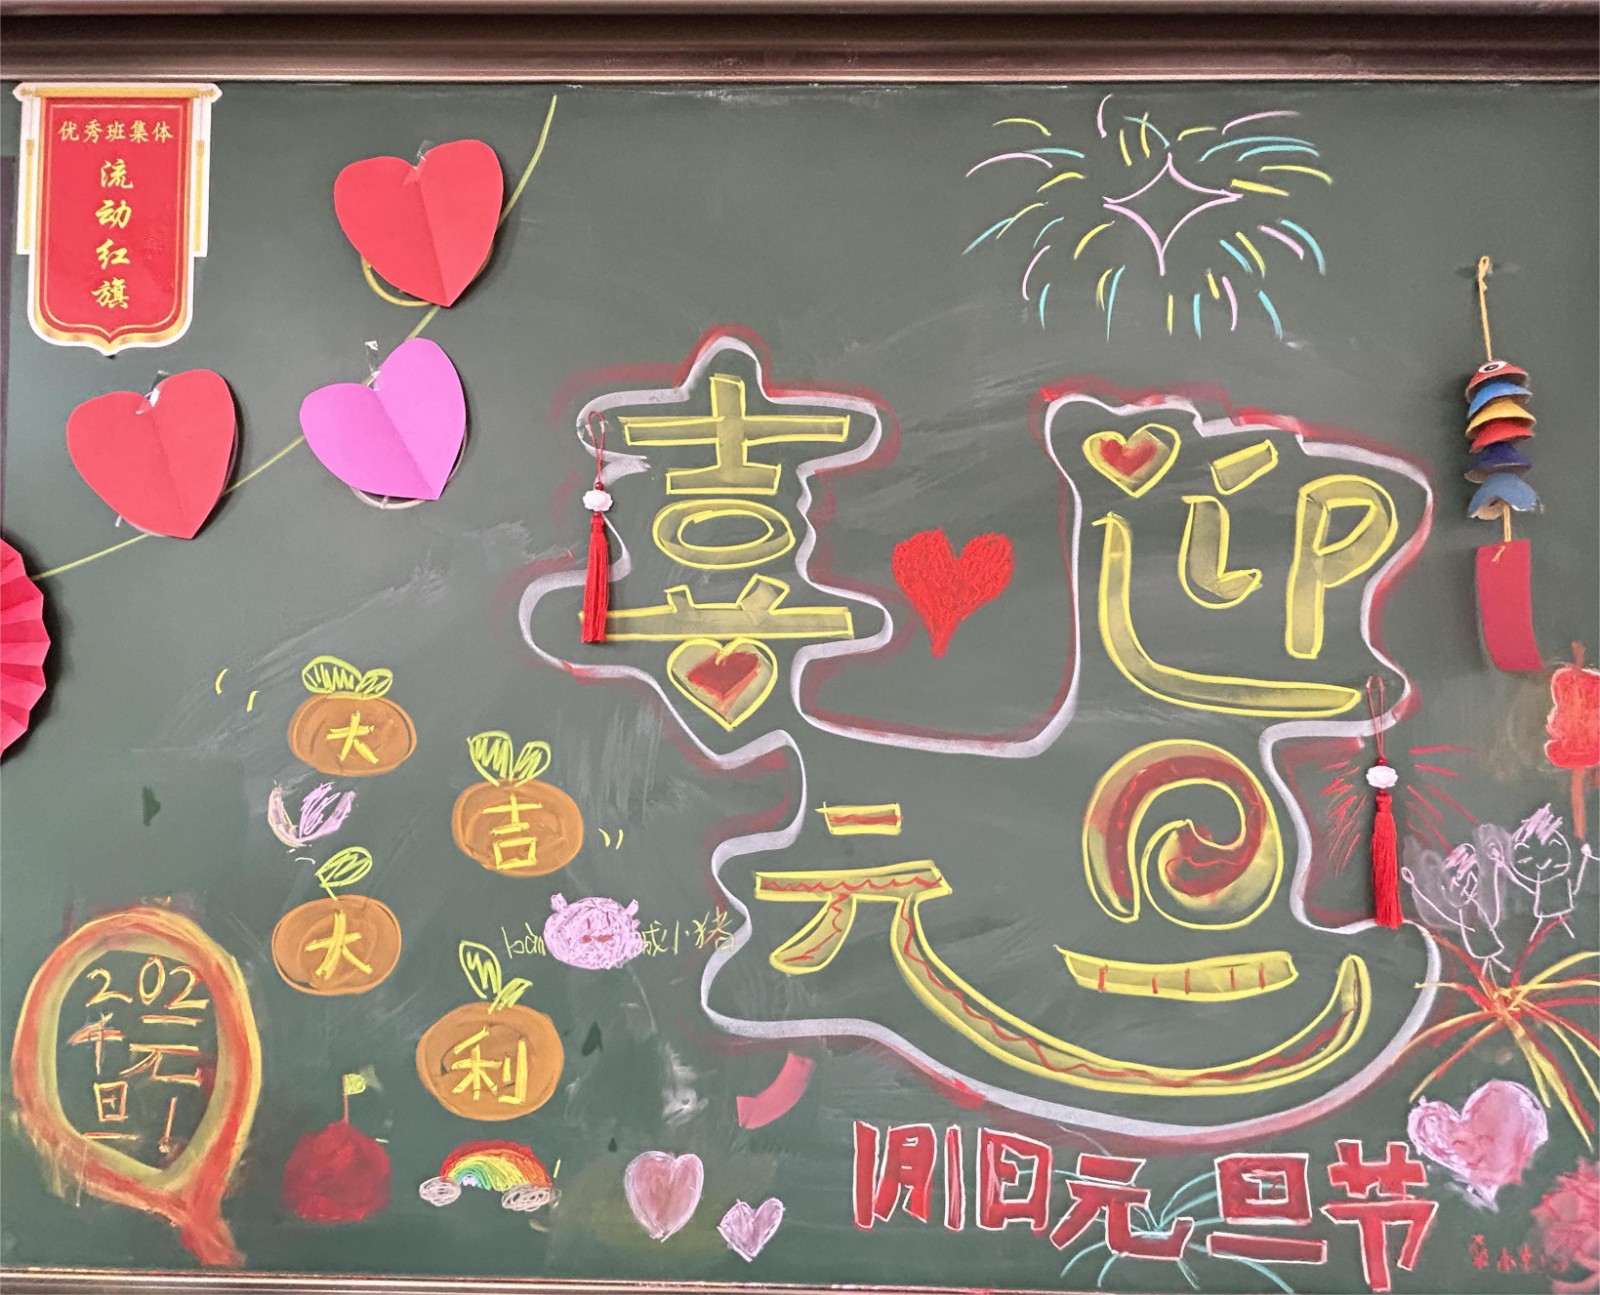 优秀班集体
流动红旗
喜迎
元旦
大
吉
大
利
小猪
202
年元
旦!
1月1日元旦节